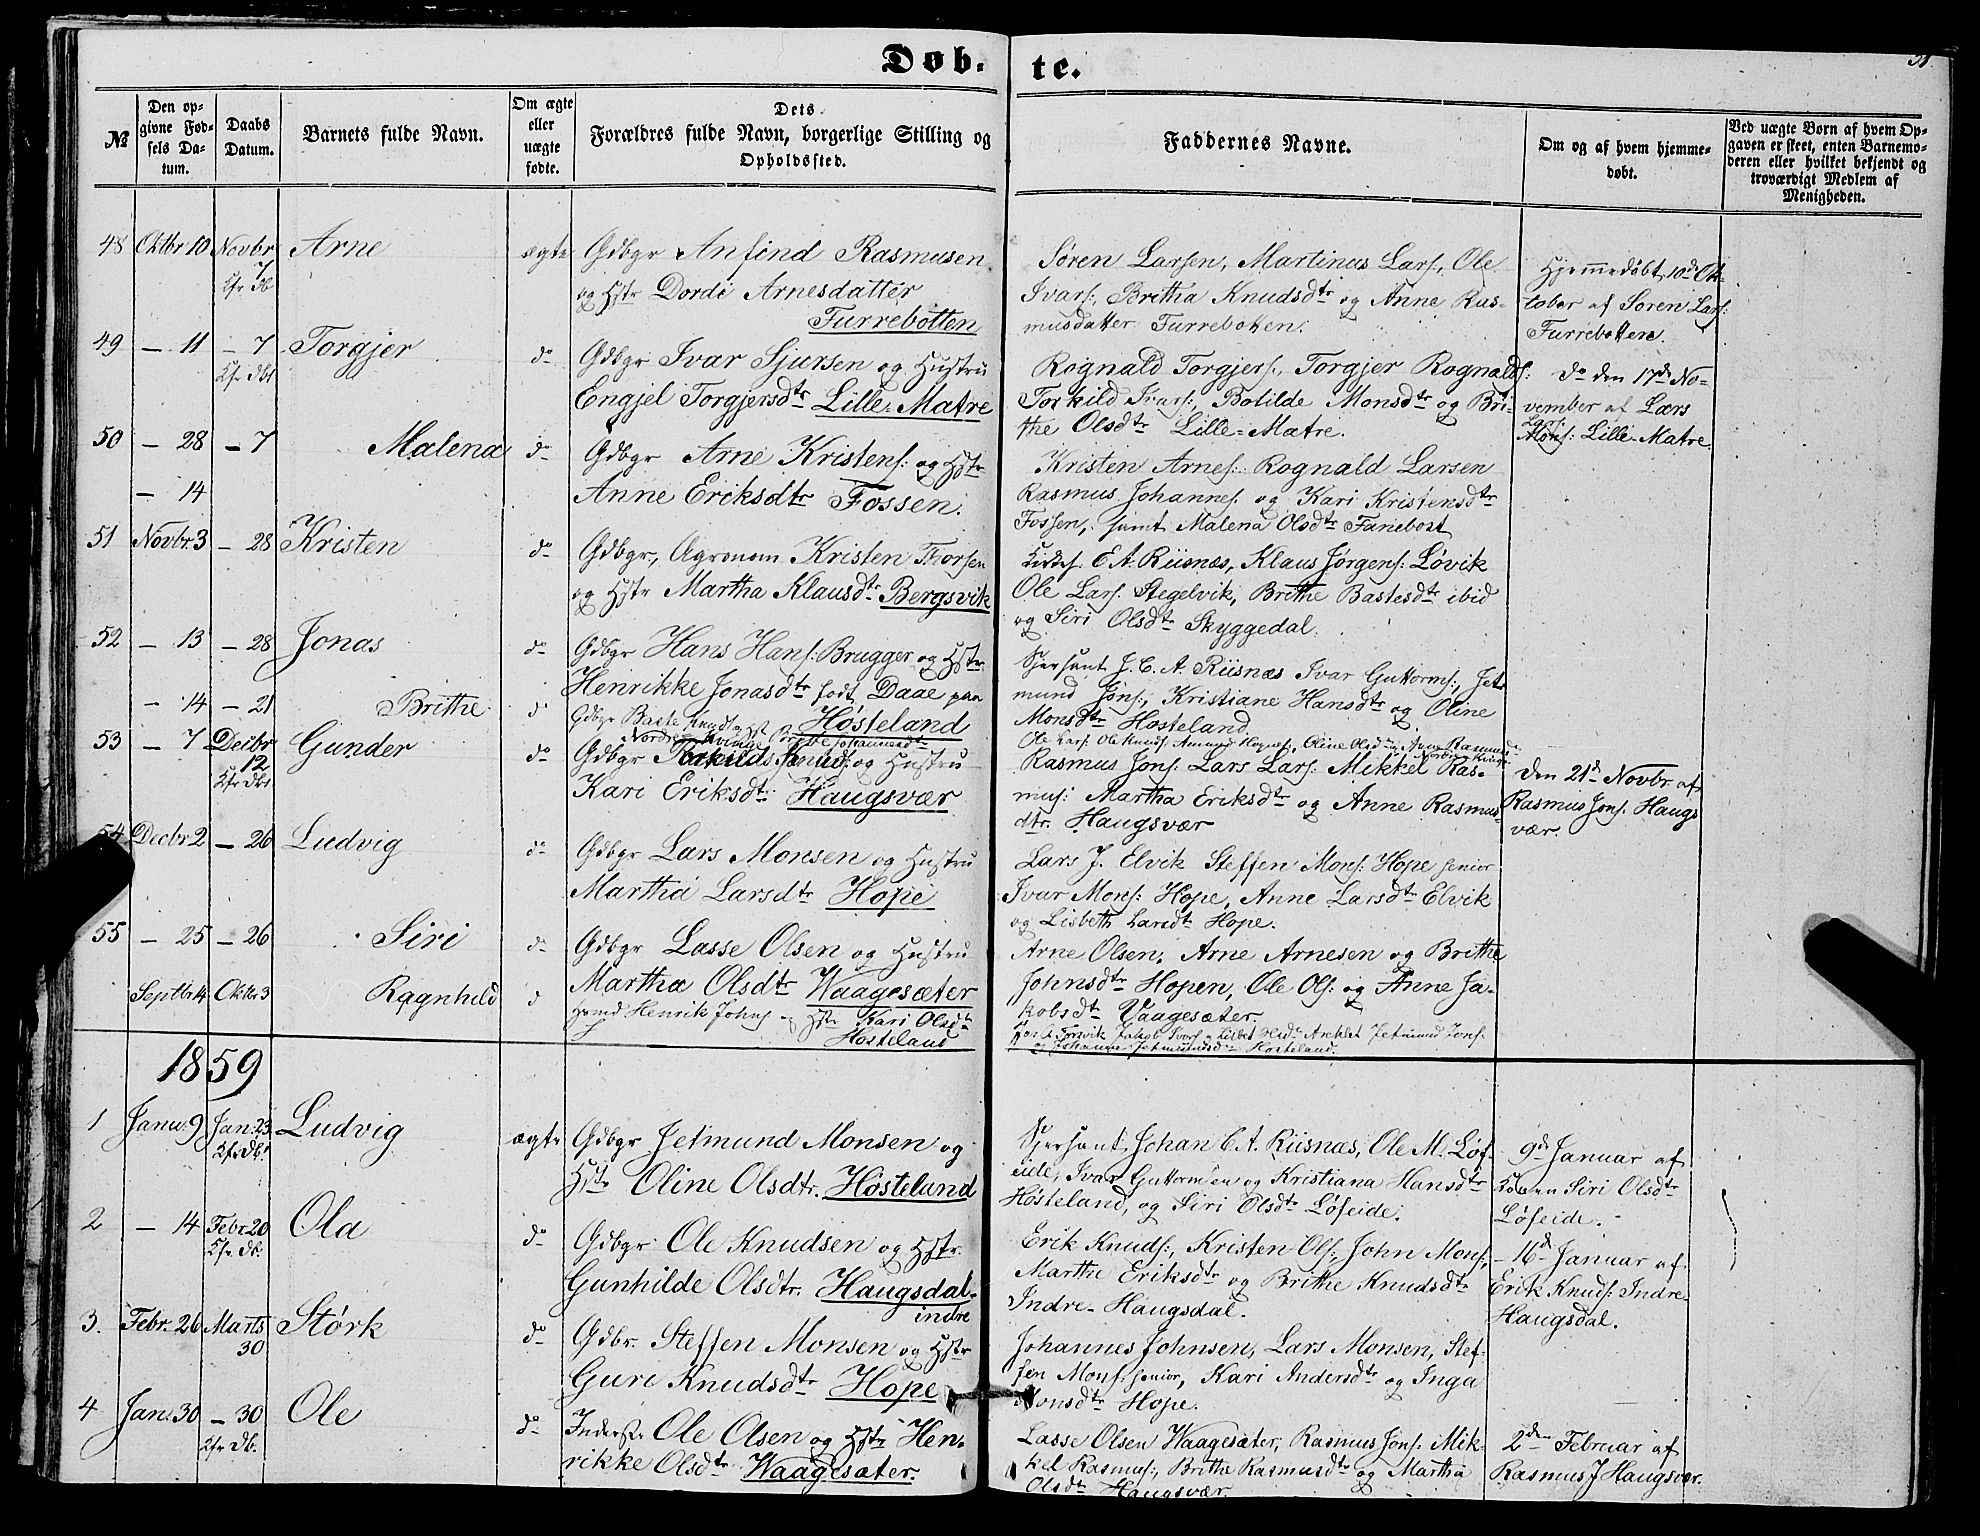 Døb- te.
№
Den op-
givne Fød-
sels Da-
tum.
Daabs
Datum.
Barnets fulde Navn.
Om ægte
eller
uægte
fødte.
Dets
Forældres fulde Navn, borgerlige Stilling og
Opholdsted.
Faddernes Navne.
Om og af hvem hjemme-
døbt.
Ved uægte Børn af hvem Op-
gaven er skeet, enten Barnemo-
deren eller hvilket bekjendt og
troværdigt Medlem af
Menigheden.
48 Oktbr 10 Novbr 7 Arne ægte Gdbgr Anfind Rasmusen
og Hstr Dordi Arnesdatter
Furrebotten
Søren Larsen, Martinus Lars:, Ole
Ivars:, Britha Knudsdtr og Anne Ras-
musdatter Furrebotten.
Hjemmedøbt 10de Ok-
tober af Søren Lars:
Furrebotten.
49 — 11 — 7 Torgjer do Gdbgr Ivar Sjursen og Hustru
Engjel Torgjersdtr Lille-Matre
Rognald Torgjers:, Torgjer Rognalds:
Torkild Ivars:, Botilde Monsdtr og Bri-
the Olsdtr Lille-Matre.
do den 17de No-
vember af Lars
Mons: Lille-Matre.
50 — 28 — 7 Malena do Gdbgr Arne Kristens: og Hstr
— 14
Anne Eriksdtr Fossen.
Kristen Arnes: Rognald Larsen
Rasmus Johannes: og Kari Kristensdtr
Fossen, samt Malena Olsdtr Tanebost
51 Novbr. 3 — 28 Kristen do Gdbgr, Agronom Kristen Thorsen
og Hstr Martha Klausdtr Bergsvik
E A. Riisnæs, Klaus Jørgens: Løvik
Ole Lars: Stegelvik, Brithe Bastesdtr ibid
og Siri Olsdtr Skyggedal.
52 — 13 — 28 Jonas do Gdbgr Hans Hans: Brugger og Hstr
Henrikke Jonasdtr født Daae paa
Høsteland
Sjersant J. C. A. Riisnæs Ivar Guttorms:, Jet-
mund Jons:, Kristiane Hansdtr og Oline
Monsdtr Hosteland
— 14 — 21 Brithe do Gdbgr Baste Knuds:
Nordre Kvinge
53 — 7 Decbr 12 Gunder do Gdbgr Torkild Knuds: og Hustru
Kari Eriksdtr Haugsvær
Rasmus Jons: Lars Lars: Mikkel Ras-
mus: Martha Eriksdtr og Anne Rasmus-
dtr. Haugsvær
Den 21de Novbr af
Rasmus Jons: Haugs-
vær.
54 Decbr 2 — 26 Ludvig do Gdbgr Lars Monsen og Hustru
Martha Larsdtr Hope
Lars J. Elvik Steffen Mons: Hope senior
Ivar Mons: Hope, Anne Larsdtr Elvik
og Lisbeth Larsdtr Hope.
55 — 25 — 26 Siri do Gdbgr Lasse Olsen og Hustru
Martha Olsdtr Waagesæter
Arne Olsen, Arne Arnesen og Brithe
Johnsdtr Hopen, Ole Ols: og Anne Ja-
kobsdtr Vaagesæter.
Septbr 14 Oktbr 3 Ragnhild do
Hmd Henrik Johns: og Hstr Kari Olsdtr
Hosteland
1859
1 Janu: 9 Jan: 23 Ludvig ægte Gdbgr Jetmund Monsen og
Hstr Oline Olsdtr. Høsteland
Sjersant Johan C. A. Riisnæs, Ole M: Løf-
eide, Ivar Guttormsen og Kristiana Hansdtr
Høsteland, og Siri Olsdtr Løfeide.
9de Januar af
Konen Siri Olsdtr
Løfeide.
2 — 14 Febr 20 Ola do Gdbgr Ole Knudsen og Hstr
Gunhilde Olsdtr. Haugsdal
indre
Erik Knuds:, Kristen Ols:, John Mons:,
Marthe Eriksdtr og Brithe Knudsdtr
Indre-Haugsdal.
16de Januar af
Erik Knuds: Indre-
Haugsdal.
3. Febr. 26 Marts 30 Størk do Gdbr. Steffen Monsen og Hstr
Guri Knudsdtr Hope
Johannes Johnsen, Lars Monsen, Stef-
fen Mons: senior, Kari Andersdtr og Inga
Monsdtr Hope.
4 Jan: 30 — 30 Ole do Inderst Ole Olsen og Hstr Hen-
rikke Olsdtr Waagesæter.
Lasse Olsen Waagesæter, Rasmus Jons: Mik-
kel Rasmus:, Brithe Rasmusdtr og Martha
Olsdtr Haugsvær.
2den Februar af
Rasmus J Haugsvær.